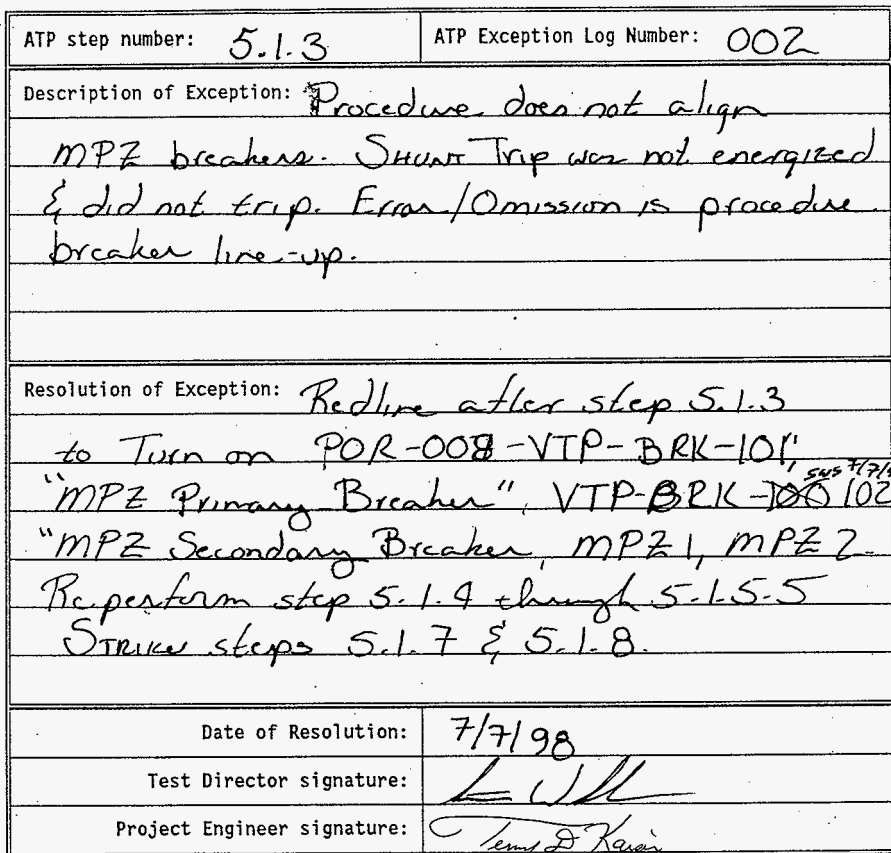 ATP step number: 5.1.3 ATP Exception Log Number: 002
Description of Exception: Procedure does not align
MPZ breakers. SHUNT Trip was not energized
& did not trip. Error/Omission is procedure
breaker line-up.
Resolution of Exception: Redline after step 5.1.3
to Turn on POR-008-VTP-BRK-101,
"MPZ Primary Breaker", VTP-BRK-100 102
"MPZ Secondary Breaker, MPZ1, MPZ2.
Reperform step 5.1.4 through 5.1.5.5
STRIKE steps 5.1.7 & 5.1.8.
Date of Resolution: 7/7/98
Test Director signature:
Project Engineer signature: